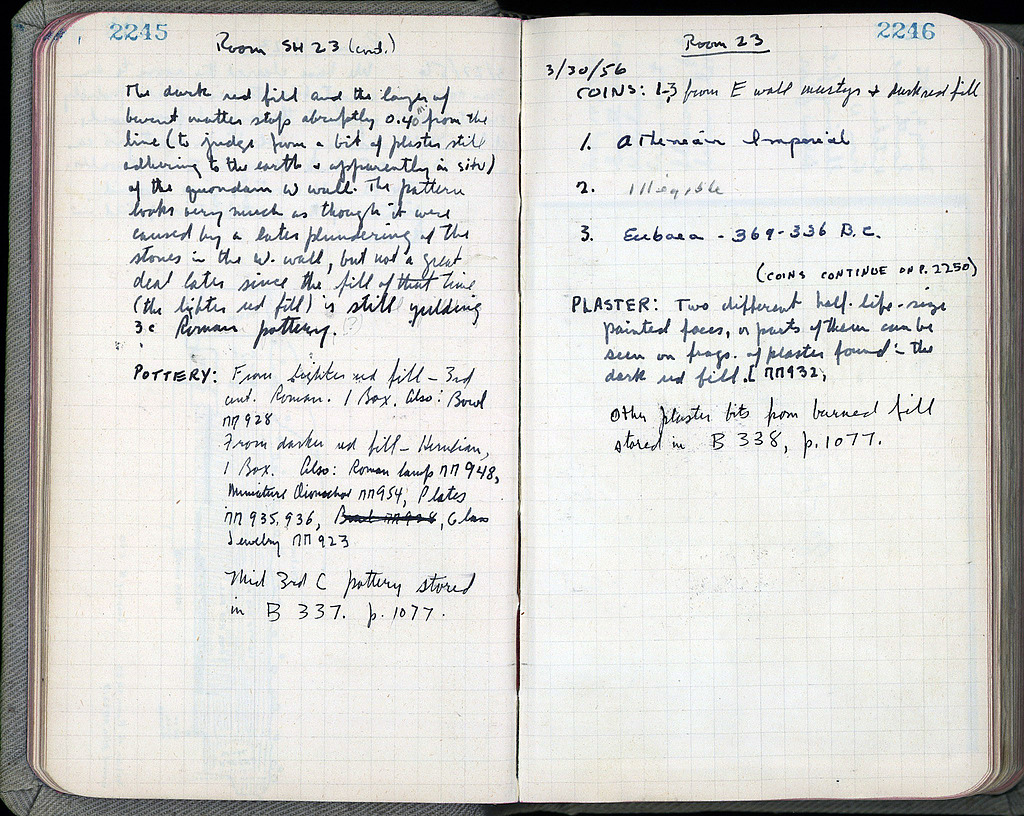 2245
Room SH 23 (cont.)
The dark red fill and the layer of
burnt matter stop abruptly 0.40 m from the
line (to judge from a bit of plaster still
adhering to the earth & apparently in situ)
of the quondam W wall. The pattern
looks very much as though it were
caused by a later plundering of the
stones in the W. wall, but not a great
deal later since the fill of that time
(the lighter red fill) is still yielding
3 c Roman pottery. (?)
POTTERY: From lighter red fill – 3rd
cent. Roman. 1 Box. Also: Bowl
ΠΠ 928
From darker red fill – Herulian,
1 Box. Also: Roman lamp ΠΠ 948,
Miniature Oinochoe ΠΠ954, Plates
ΠΠ 935, 936, Bowl ΠΠ 928, Glass
Jewelry ΠΠ 923
Mid 3rd C pottery stored
in B 337. p. 1077.
2246
Room 23
3/30/56
COINS: 1-3 from E wall & dark red fill
1. Athenian Imperial
2. Illegible
3. Euboea - 369-336 B.C.
(COINS CONTINUE ON P. 2250)
PLASTER: Two different half-life-size
painted faces, or parts of them can be
seen on frags. of plaster found in the
dark red fill. [ΠΠ932,
Other plaster bits from burned fill
stored in B 338, p. 1077.